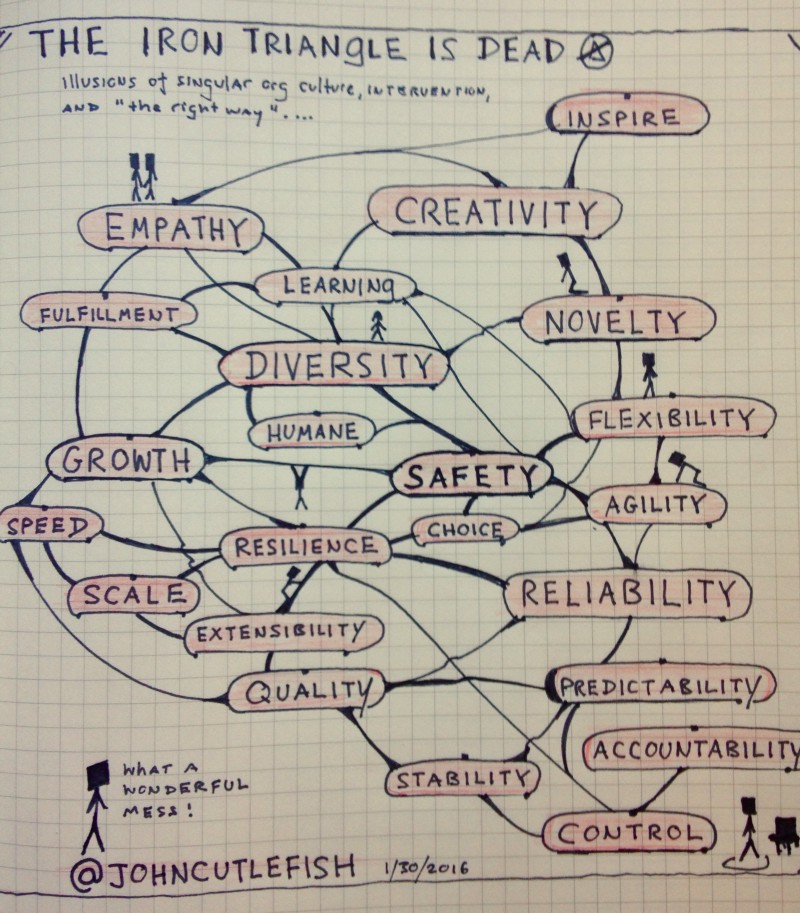 THE IRON TRIANGLE IS DEAD
illusions of singular org culture, INTERVENTION,
AND "the right way"....
INSPIRE
CREATIVITY
EMPATHY
LEARNING
FULFILLMENT
NOVELTY
DIVERSITY
FLEXIBILITY
HUMANE
GROWTH
SAFETY
AGILITY
SPEED
CHOICE
RESILIENCE
SCALE
RELIABILITY
EXTENSIBILITY
QUALITY
PREDICTABILITY
ACCOUNTABILITY
STABILITY
CONTROL
WHAT A
WONDERFUL
MESS!
@JOHNCUTLEFISH 1/30/2016